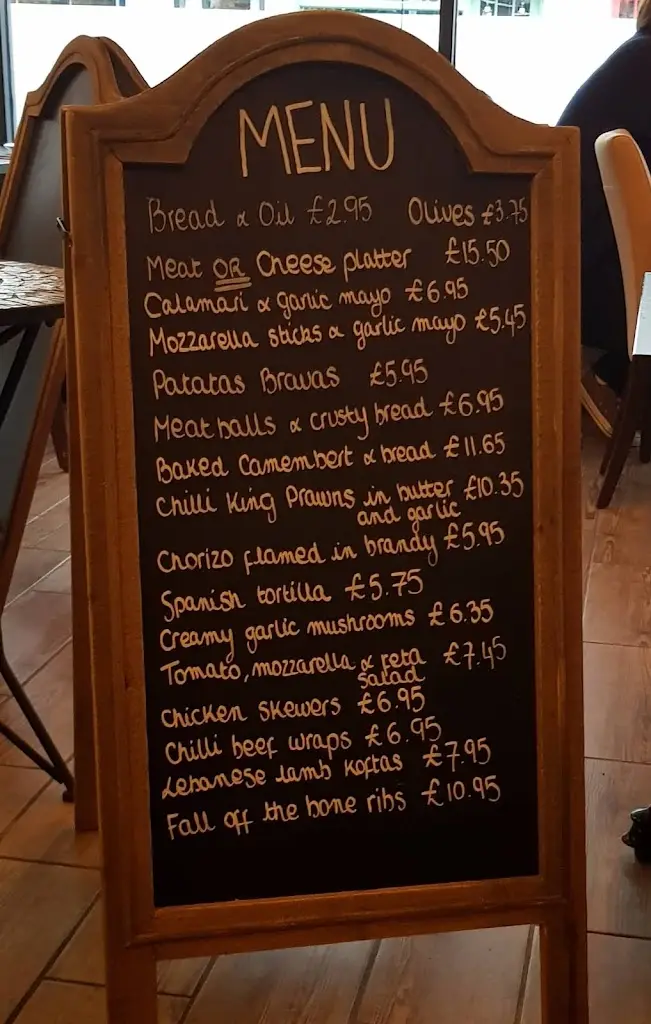 MENU
Bread & Oil £2.95 Olives £3.75
Meat OR Cheese platter £15.50
Calamari & garlic mayo £6.95
Mozzarella sticks & garlic mayo £5.45
Patatas Bravas £5.95
Meatballs & crusty bread £6.95
Baked Camembert & bread £11.65
Chilli King Prawns in butter £10.35
and garlic
Chorizo flamed in brandy £5.95
Spanish tortilla £5.75
Creamy garlic mushrooms £6.35
Tomato, mozzarella & feta £7.45
salad
Chicken skewers £6.95
Chilli beef wraps £6.95
Lebanese lamb koftas £7.95
Fall off the bone ribs £10.95